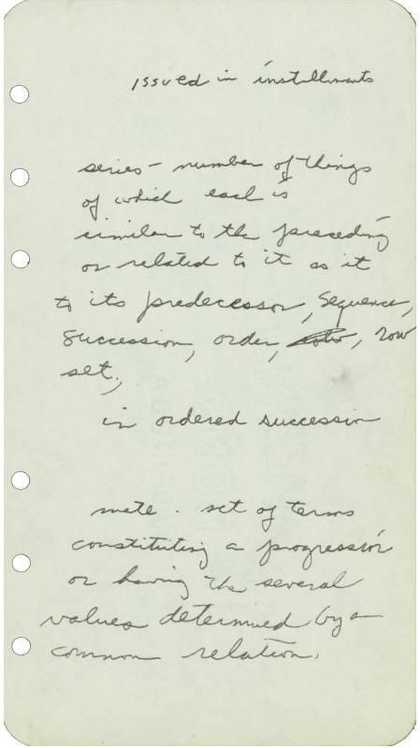 issued in installments
series – number of things
of which each is
similar to the preceding
or related to it as it
to its predecessor, sequence,
succession, order, row
set,
in ordered succession
math. set of terms
constituting a progression
or having the several
values determined by a
common relation.